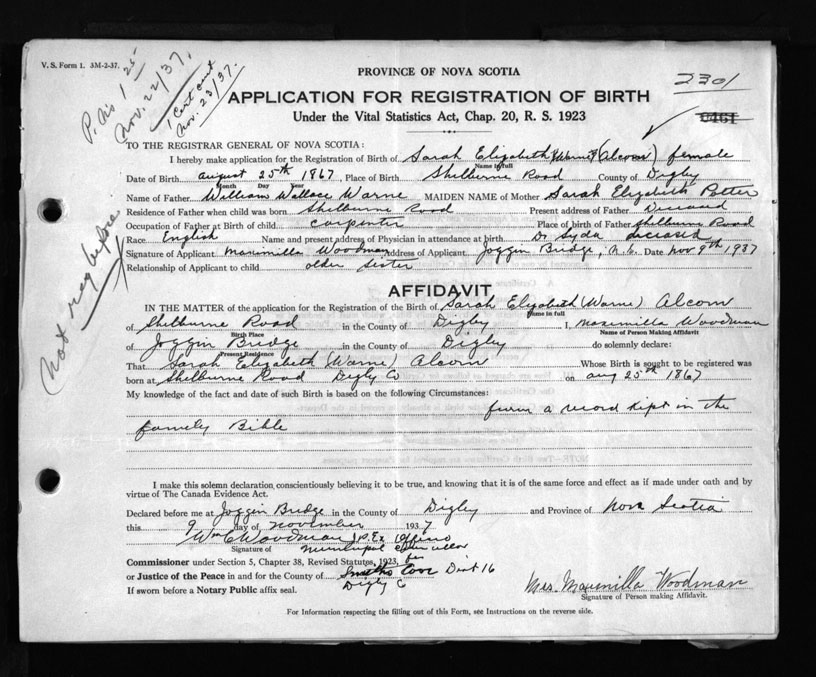 V. S. Form 1. 3M-2-37.
Nov. 22/37.
1 Cert
Nov. 23/37.
not reg before
2301
PROVINCE OF NOVA SCOTIA
APPLICATION FOR REGISTRATION OF BIRTH
Under the Vital Statistics Act, Chap. 20, R. S. 1923
TO THE REGISTRAR GENERAL OF NOVA SCOTIA:
I hereby make application for the Registration of Birth of Sarah Elizabeth (Warne) (Alcorn) female
Name in full
Date of Birth august 25th 1867, Place of Birth Shelburne Road County of Digby
Month Day Year
Name of Father William Wallace Warne MAIDEN NAME of Mother Sarah Elizabeth Potter
Residence of Father when child was born Shelburne Road Present address of Father Deceased
Occupation of Father at Birth of child carpenter Place of birth of Father Shelburne Road
Race English Name and present address of Physician in attendance at birth Dr deceased
Signature of Applicant Maximilla Woodman Address of Applicant Joggin Bridge, N.S. Date Nov 9th 1937
Relationship of Applicant to child older sister
AFFIDAVIT
IN THE MATTER of the application for the Registration of the Birth of Sarah Elizabeth (Warne) Alcorn
Name in full
of Shelburne Road in the County of Digby I, Maximilla Woodman
Birth Place Name of Person Making Affidavit
of Joggin Bridge in the County of Digby do solemnly declare:
Present Residence
That Sarah Elizabeth (Warne) Alcorn Whose Birth is sought to be registered was
born at Shelburne Road Digby Co on aug 25th 1867
My knowledge of the fact and date of such Birth is based on the following Circumstances:
from a record kept in the
family Bible
I make this solemn declaration, conscientiously believing it to be true, and knowing that it is of the same force and effect as if made under oath and by
virtue of The Canada Evidence Act.
Declared before me at Joggin Bridge in the County of Digby and Province of Nova Scotia
this 9 day of november 1937
Wm C Woodman J.P. Ex Officio
Signature of municipal
Commissioner under Section 5, Chapter 38, Revised Statutes, 1923, for
or Justice of the Peace in and for the County of Smiths Cove Dist 16
If sworn before a Notary Public affix seal. Digby C
Mrs. Maximilla Woodman
Signature of Person making Affidavit.
For Information respecting the filling out of this Form, see Instructions on the reverse side.